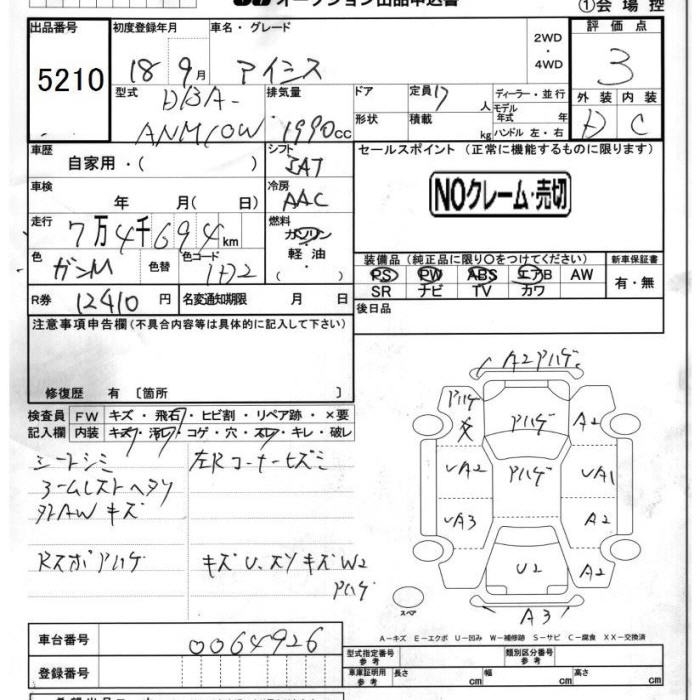 オークション出品申込書
①会場控
出品番号 初度登録年月 車名・グレード 評価点
5210 18 9月 アイシス 2WD・4WD 3
型式 排気量 ドア 定員 7人 ディーラー・並行 外装 内装
DBA-ANM10W 1990cc 形状 積載 kg モデル年式 年 ハンドル 左・右 D C
車歴 シフト セールスポイント (正常に機能するものに限ります)
自家用・( ) AT
NOクレーム・売切
車検 冷房
年 月( 日) AAC
走行 燃料
7万4千694km ガソリン
装備品 (純正品に限り○をつけてください) 新車保証書
色 色替 色コード 軽油・
ガンM 1H2 PS PW ABS エアB AW 有・無
SR ナビ TV カワ
R券 12410円 名変通知期限 月 日 後日品
注意事項申告欄(不具合内容等は具体的に記入して下さい)
修復歴 有〔箇所 〕
検査員 FW キズ・飛石・ヒビ割・リペア跡・×要
記入欄 内装 キズ・汚レ・コゲ・穴・スレ・キレ・破レ
シートシミ 左Rコーナーヒズミ
外AWキズ
Rスポ Aハゲ キズU、スリキズW2
Aハゲ
A2Aハゲ
Aハゲ Aハゲ A2
UA2 Aハゲ UA1
UA3 A2
U2 A2
スペア A3
A-キズ E-エクボ U-凹み W-補修跡 S-サビ C-腐食 XX-交換済
車台番号 0064926
型式指定番号 参考 類別区分番号 参考
登録番号 車庫証明用 参考 長さ cm 幅 cm 高さ cm